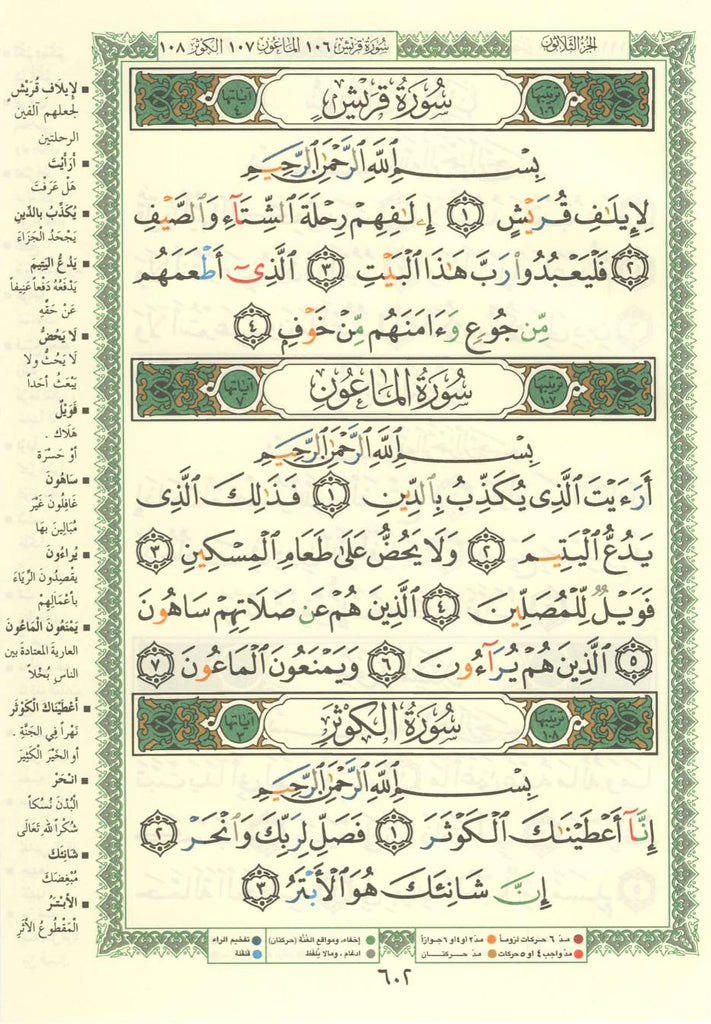 الجزء الثلاثون
سورة قريش ١٠٦ الماعون ١٠٧ الكوثر ١٠٨
ترتيبها ١٠٦
سُورَةُ قُرَيْشٍ
آياتها ٤
بِسْمِ ٱللَّهِ ٱلرَّحْمَٰنِ ٱلرَّحِيمِ
لِإِيلَٰفِ قُرَيْشٍ ١ إِۦلَٰفِهِمْ رِحْلَةَ ٱلشِّتَآءِ وَٱلصَّيْفِ
٢ فَلْيَعْبُدُوا۟ رَبَّ هَٰذَا ٱلْبَيْتِ ٣ ٱلَّذِىٓ أَطْعَمَهُم
مِّن جُوعٍ وَءَامَنَهُم مِّنْ خَوْفٍۭ ٤
ترتيبها ١٠٧
سُورَةُ المَاعُونِ
آياتها ٧
بِسْمِ ٱللَّهِ ٱلرَّحْمَٰنِ ٱلرَّحِيمِ
أَرَءَيْتَ ٱلَّذِى يُكَذِّبُ بِٱلدِّينِ ١ فَذَٰلِكَ ٱلَّذِى
يَدُعُّ ٱلْيَتِيمَ ٢ وَلَا يَحُضُّ عَلَىٰ طَعَامِ ٱلْمِسْكِينِ ٣
فَوَيْلٌ لِّلْمُصَلِّينَ ٤ ٱلَّذِينَ هُمْ عَن صَلَاتِهِمْ سَاهُونَ
٥ ٱلَّذِينَ هُمْ يُرَآءُونَ ٦ وَيَمْنَعُونَ ٱلْمَاعُونَ ٧
ترتيبها ١٠٨
سُورَةُ الكَوْثَرِ
آياتها
بِسْمِ ٱللَّهِ ٱلرَّحْمَٰنِ ٱلرَّحِيمِ
إِنَّآ أَعْطَيْنَٰكَ ٱلْكَوْثَرَ ١ فَصَلِّ لِرَبِّكَ وَٱنْحَرْ ٢
إِنَّ شَانِئَكَ هُوَ ٱلْأَبْتَرُ ٣
لِإيلَافِ قُرَيْشٍ
لجعلهم آلفين
الرحلتين
أَرَأَيْتَ
هَلْ عَرَفْتَ
يُكَذِّبُ بالدِّينِ
يَجْحَدُ الْجَزَاءَ
يَدُعُّ اليَتِيمَ
يَدْفَعُهُ دَفْعاً عَنِيفاً
عَنْ حَقِّهِ
لَا يَحُضُّ
لَا يَحُثُّ ولا
يَبْعَثُ أَحَداً
فَوَيْلٌ
هَلَاك .
أوْ حَسْرَة
سَاهُونَ
غَافِلُونَ غَيْرَ
مُبَالِينَ بِهَا
يُراءُونَ
يقْصِدُونَ الرِّيَاءَ
بأَعْمَالِهِمْ
يَمْنَعُونَ المَاعُونَ
العارية المعتادة بين
الناس بُخْلاً
أَعْطَيْنَاكَ الْكَوْثَرَ
نَهْراً فِي الجَنَّةِ .
أو الخَيْرَ الْكَثِيرَ
انْحَرْ
الْبُدْنَ نُسُكاً
شُكْراً لله تَعَالَى
شَانِئَكَ
مُبْغِضَكَ
الأَبْتَرُ
المَقْطُوعُ الأَثَرِ
مدّ ٦ حركات لزوماً مدّ ٢ او ٤ او ٦ جوازاً إخفاء، ومواقع الغُنَّة (حركتان) تفخيم الراء
مدّ واجب ٤ او ٥ حركات مدّ حركتان ادغام، وما لا يُلفظ قلقلة
٦٠٢